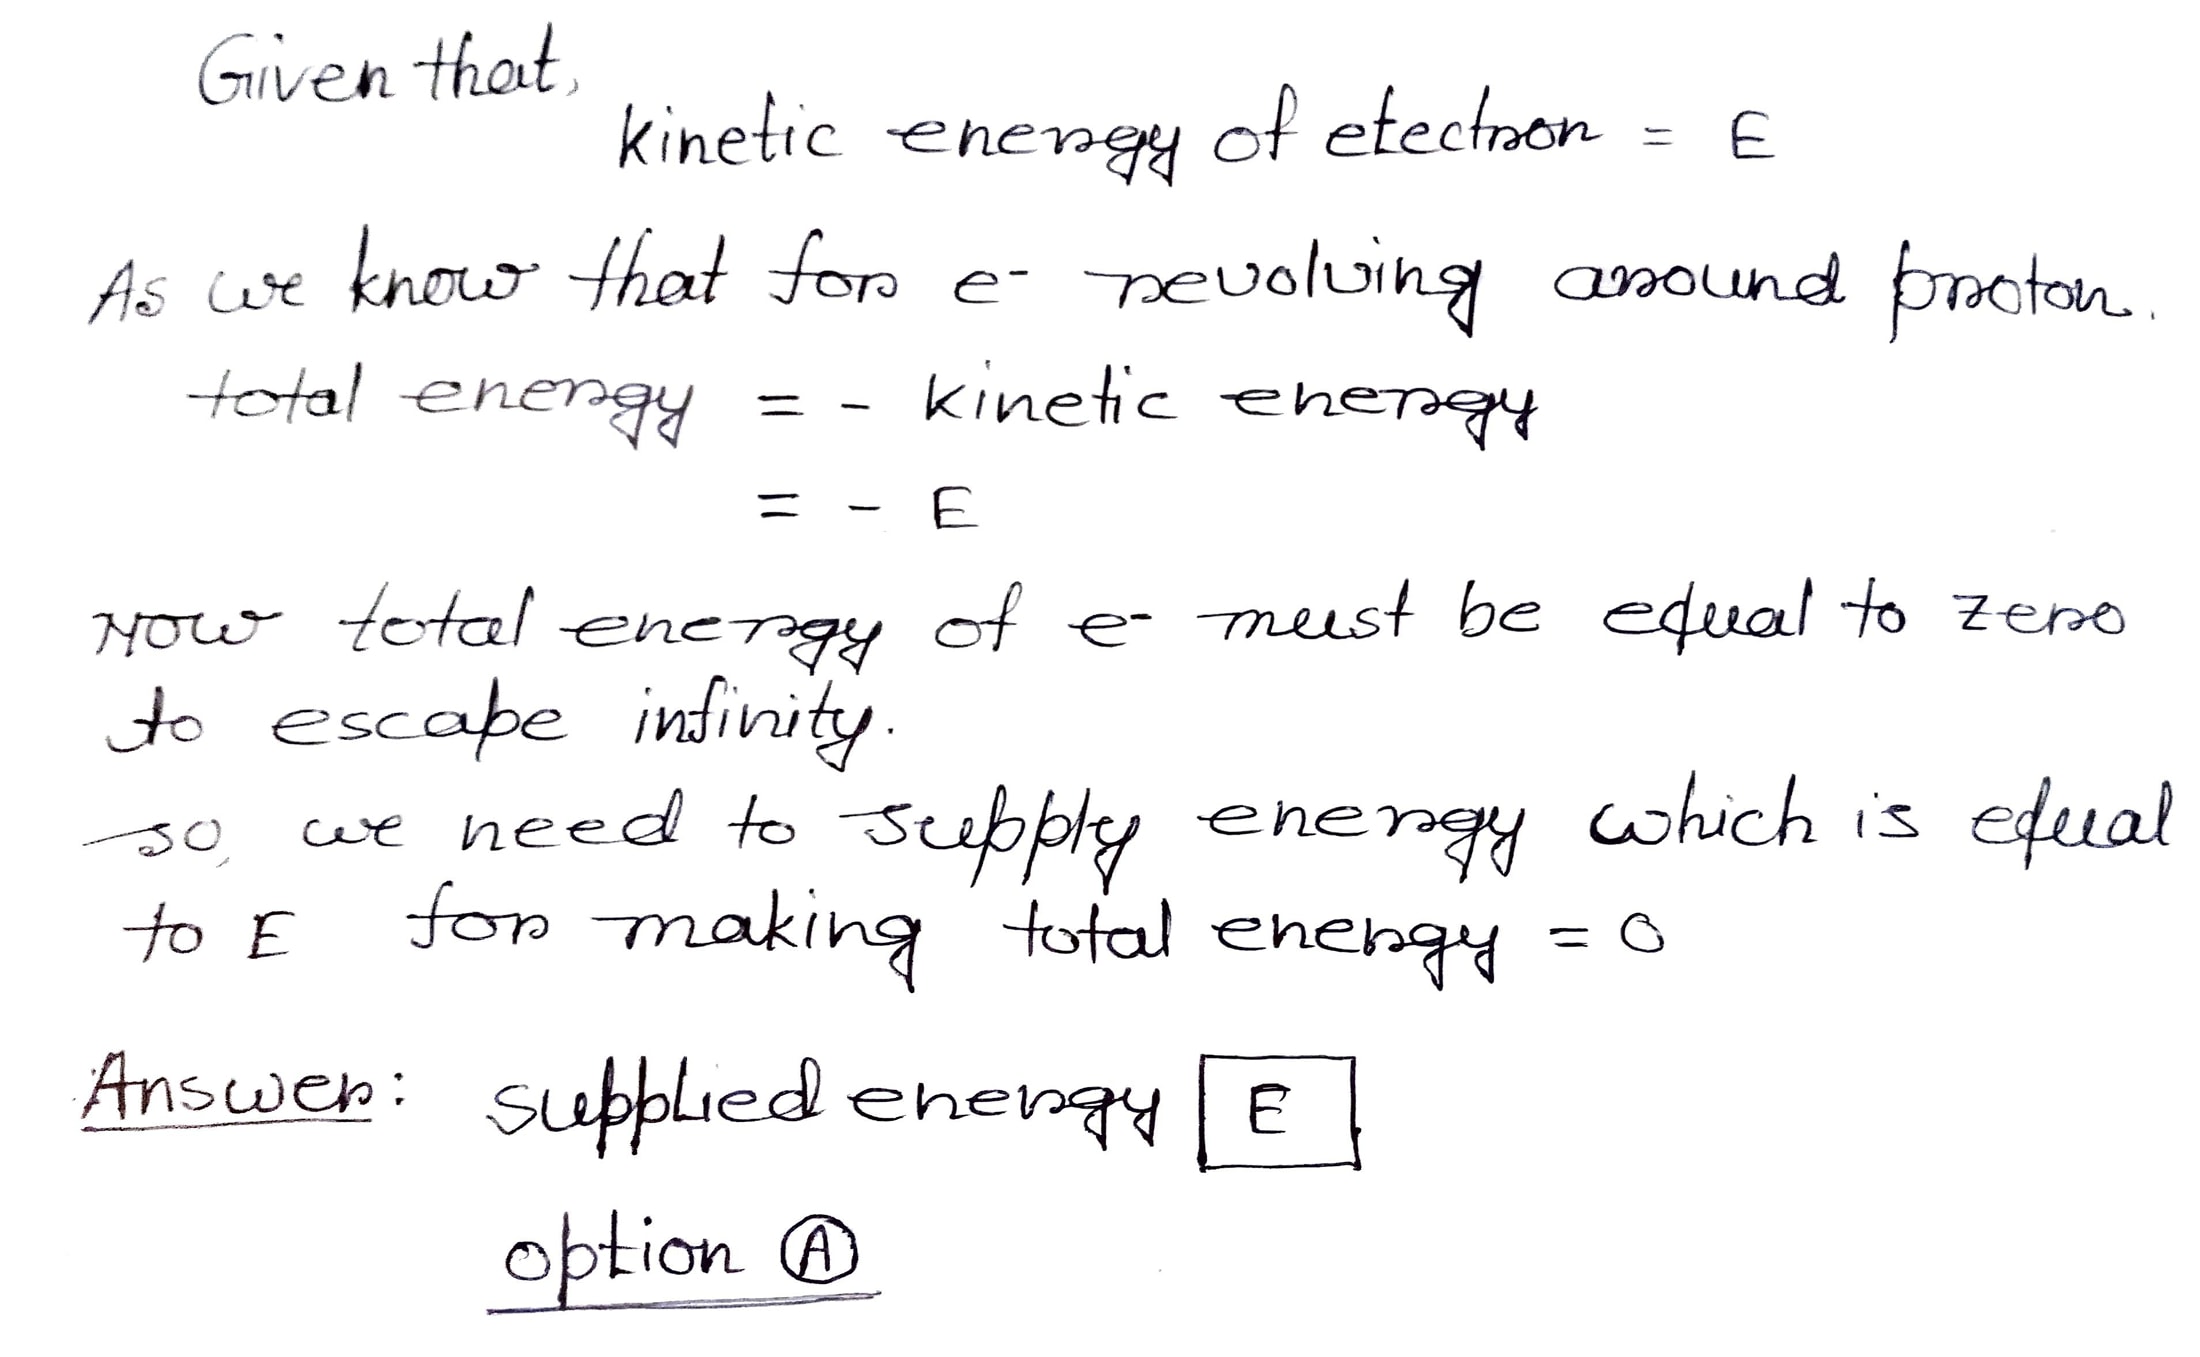 Given that,
kinetic energy of electron = E
As we know that for e- revolving around proton.
total energy = - kinetic energy
= - E
Now total energy of e- must be equal to zero
to escape infinity.
so, we need to supply energy which is equal
to E for making total energy = 0
Answer: supplied energy E
option A